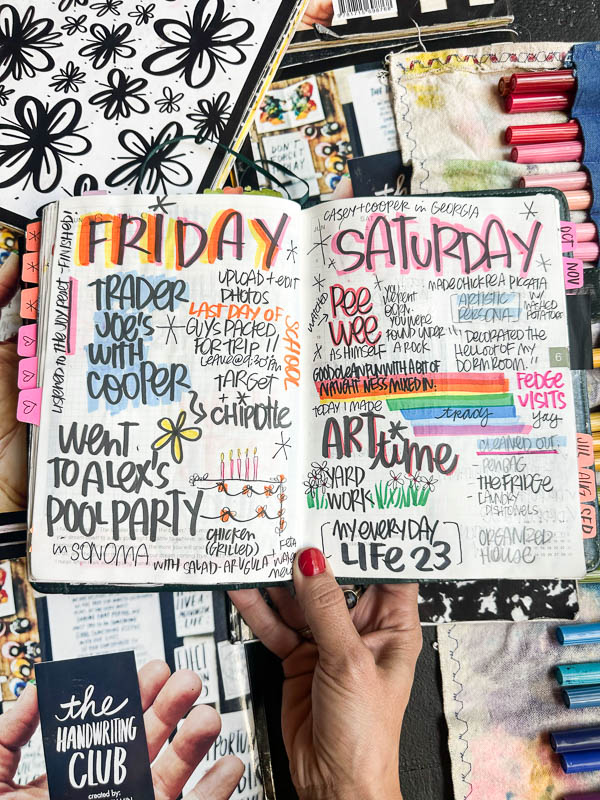 DON'T
FRIDAY
LISTENED TO THE JOY
-FINISHED
TRADER
JOE'S
WITH
COOPER
UPLOAD + EDIT
PHOTOS
LAST DAY OF
SCHOOL
GUYS PACKED
FOR TRIP!!
TARGET
+
CHIPOTLE
WENT
TO ALEX'S
POOL PARTY
in SONOMA
CHICKEN
(GRILLED)
WITH SALAD-ARUGULA +
FETA
CASEY + COOPER in GEORGIA
SAT
SATURDAY
WATCHED
PEE
WEE
AS HIMSELF
YOU
WERENT
BORN.
YOU WERE
FOUND UNDER
A ROCK.
MADE CHICKEN PICCATA
W/
POTATOES
ARTISTIC
PERSONA
"DECORATED THE
HELL OUT OF MY
DORM ROOM."
GOOD CLEAN FUN WITH A BIT OF
NAUGHTINESS MIXED IN.
TODAY I MADE
tracy
FEDGE
VISITS
yay
6
ART
time
YARD
WORK
CLEANED OUT
- PEN BAG
- THE FRIDGE
- LAUNDRY
DISH TOWELS
ORGANIZED
HOUSE
MY EVERYDAY
LIFE 23
OCT NOV
JUL AUG SEP
the
HANDWRITING
CLUB
created by: